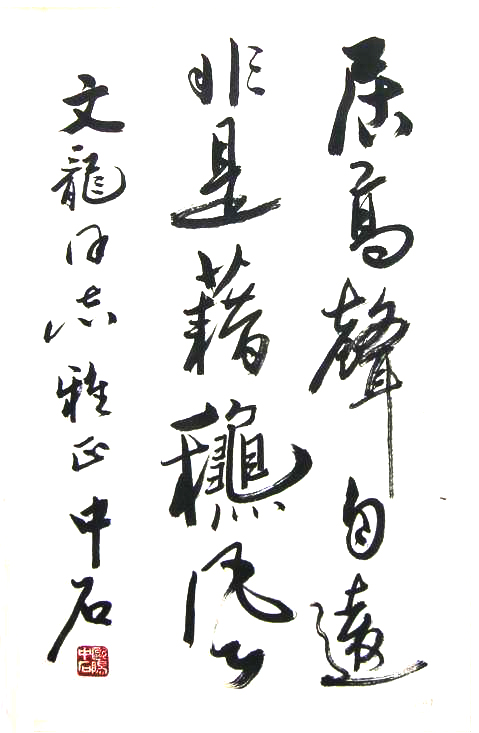 居高聲自遠
非是藉龝風
文龍同志雅正中石
歐陽
中石